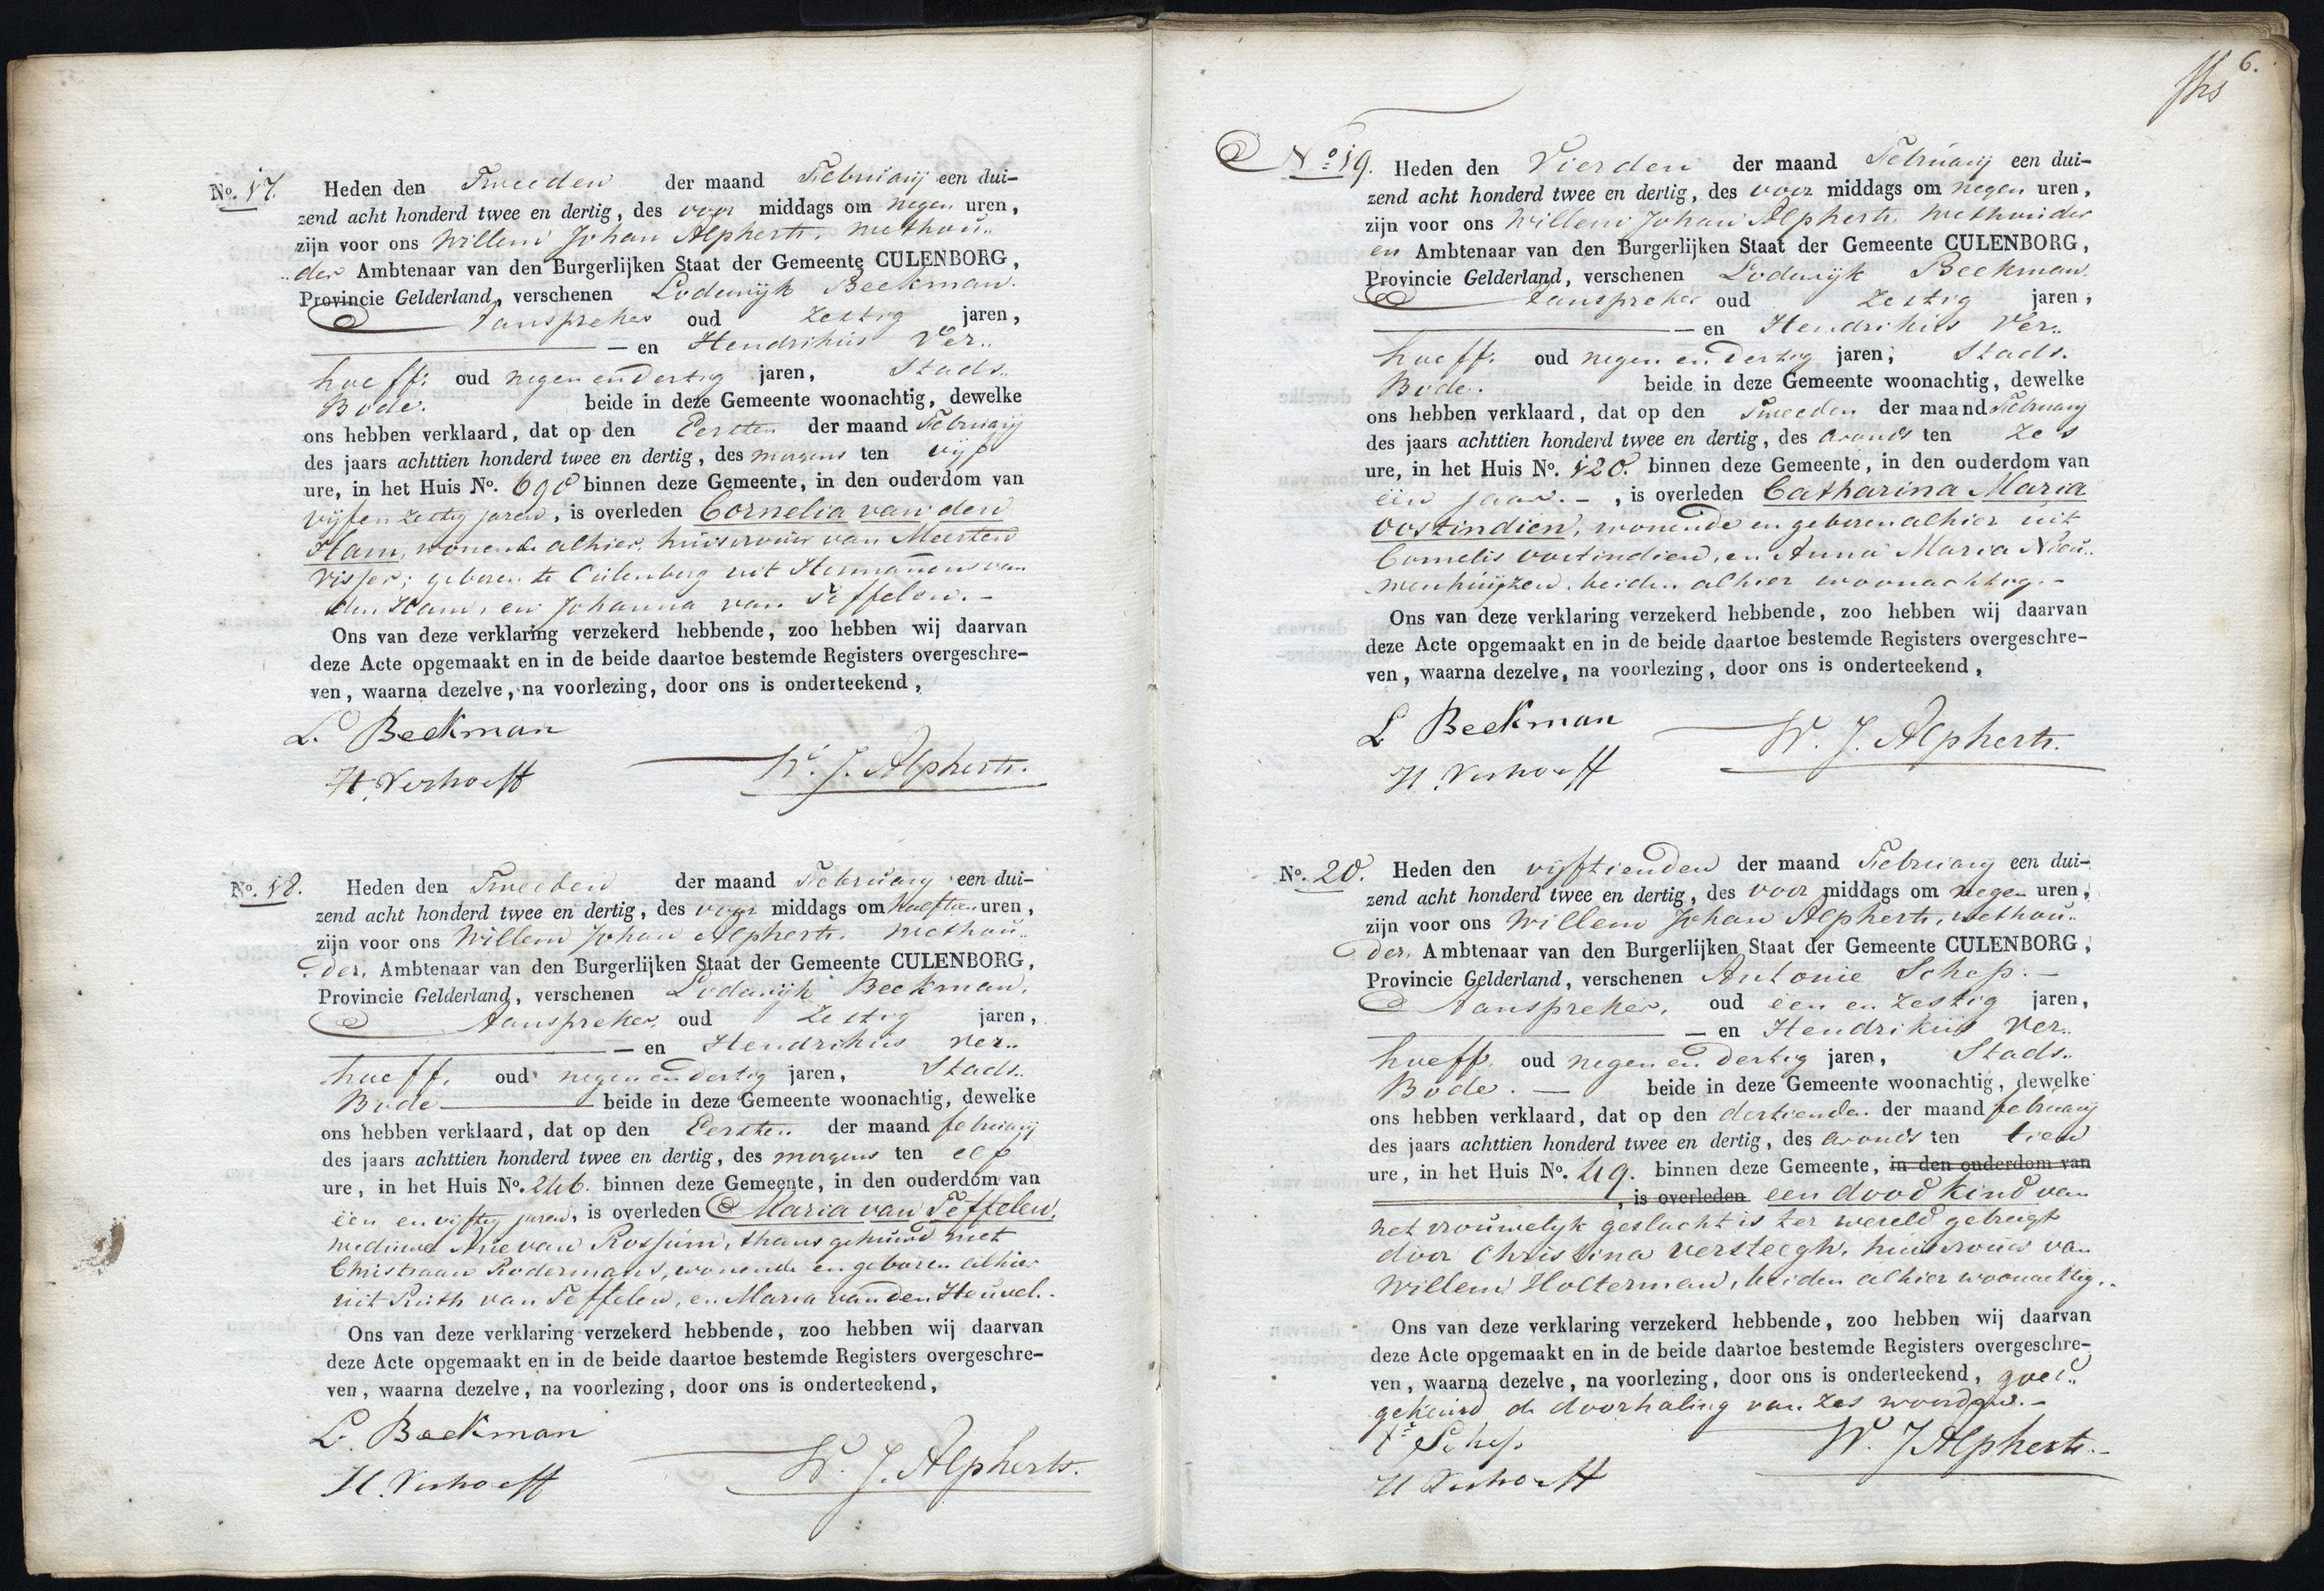 No. 17. Heden den Tweeden der maand Februarij een dui-
zend acht honderd twee en dertig, des voor middags om negen uren,
zijn voor ons Willem Johan Alpherts. Wethou..
..der Ambtenaar van den Burgerlijken Staat der Gemeente CULENBORG,
Provincie Gelderland, verschenen Lodewijk Beekman.
Aanspreker oud Zestig jaren,
— en Hendrikus Ver..
hoeff. oud negen en dertig jaren, Stads..
Bode. beide in deze Gemeente woonachtig, dewelke
ons hebben verklaard, dat op den Eersten der maand Februarij
des jaars achttien honderd twee en dertig, des morgens ten vijf
ure, in het Huis No. 690 binnen deze Gemeente, in den ouderdom van
vijf en zestig jaren, is overleden Cornelia van den
Ham, wonende alhier, huisvrouw van Meerten
Visser; geboren te Culenborg uit Hermanus van
den Ham, en Johanna van Teffelen. -
Ons van deze verklaring verzekerd hebbende, zoo hebben wij daarvan
deze Acte opgemaakt en in de beide daartoe bestemde Registers overgeschre-
ven, waarna dezelve, na voorlezing, door ons is onderteekend,
L. Beekman
W. J. Alpherts.
H. Verhoeff
No. 18. Heden den Tweeden der maand Februarij een dui-
zend acht honderd twee en dertig, des voor middags om half tien uren,
zijn voor ons Willem Johan Alpherts. Wethou..
..der, Ambtenaar van den Burgerlijken Staat der Gemeente CULENBORG,
Provincie Gelderland, verschenen Lodewijk Beekman,
Aanspreker, oud Zestig jaren,
— en Hendrikus Ver..
hoeff, oud negen en dertig jaren, Stads..
Bode beide in deze Gemeente woonachtig, dewelke
ons hebben verklaard, dat op den Eersten der maand februarij
des jaars achttien honderd twee en dertig, des morgens ten elf
ure, in het Huis No. 246. binnen deze Gemeente, in den ouderdom van
één en vijftig jaren, is overleden Maria van Teffelen,
weduwe Arie van Rossum, thans gehuwd met
Christiaan Rodermans, wonende en geboren alhier
uit Ruth van Teffelen, en Maria van den Heuvel. -
Ons van deze verklaring verzekerd hebbende, zoo hebben wij daarvan
deze Acte opgemaakt en in de beide daartoe bestemde Registers overgeschre-
ven, waarna dezelve, na voorlezing, door ons is onderteekend,
L. Beekman
W. J. Alpherts.
H. Verhoeff
6.
No. 19. Heden den Vierden der maand Februarij een dui-
zend acht honderd twee en dertig, des voor middags om negen uren,
zijn voor ons Willem Johan Alpherts. Wethouder
en Ambtenaar van den Burgerlijken Staat der Gemeente CULENBORG,
Provincie Gelderland, verschenen Lodewijk Beekman.
Aanspreker oud Zestig jaren,
— en Hendrikus Ver..
hoeff. oud negen en dertig jaren, Stads.
Bode. beide in deze Gemeente woonachtig, dewelke
ons hebben verklaard, dat op den Tweeden der maand Februarij
des jaars achttien honderd twee en dertig, des avonds ten Zes
ure, in het Huis No. 120. binnen deze Gemeente, in den ouderdom van
één jaar. - , is overleden Catharina Maria
Oostindien, wonende en geboren alhier uit
Cornelis Oostindien, en Anna Maria Nieu..
wenhuijzen. beiden alhier woonachtig. -
Ons van deze verklaring verzekerd hebbende, zoo hebben wij daarvan
deze Acte opgemaakt en in de beide daartoe bestemde Registers overgeschre-
ven, waarna dezelve, na voorlezing, door ons is onderteekend,
L Beekman
W. J. Alpherts.
H. Verhoeff
No. 20. Heden den vijftienden der maand Februarij een dui-
zend acht honderd twee en dertig, des voor middags om negen uren,
zijn voor ons Willem Johan Alpherts, wethou..
der, Ambtenaar van den Burgerlijken Staat der Gemeente CULENBORG,
Provincie Gelderland, verschenen Antonie Schep. -
Aanspreker, oud één en Zestig jaren,
— en Hendrikus Ver..
hoeff. oud negen en dertig jaren, Stads..
Bode. — beide in deze Gemeente woonachtig, dewelke
ons hebben verklaard, dat op den dertienden der maand februarij
des jaars achttien honderd twee en dertig, des avonds ten tien
ure, in het Huis No. 49. binnen deze Gemeente, in den ouderdom van
, is overleden een dood kind van
het vrouwelijk geslacht is ter wereld gebragt
door Christina Versteegh, huisvrouw van
Willem Holterman, beiden alhier woonachtig. -
Ons van deze verklaring verzekerd hebbende, zoo hebben wij daarvan
deze Acte opgemaakt en in de beide daartoe bestemde Registers overgeschre-
ven, waarna dezelve, na voorlezing, door ons is onderteekend, goed..
gekeurd de doorhaling van zes woorden. -
Schep
W. J Alpherts. -
H Verhoeff